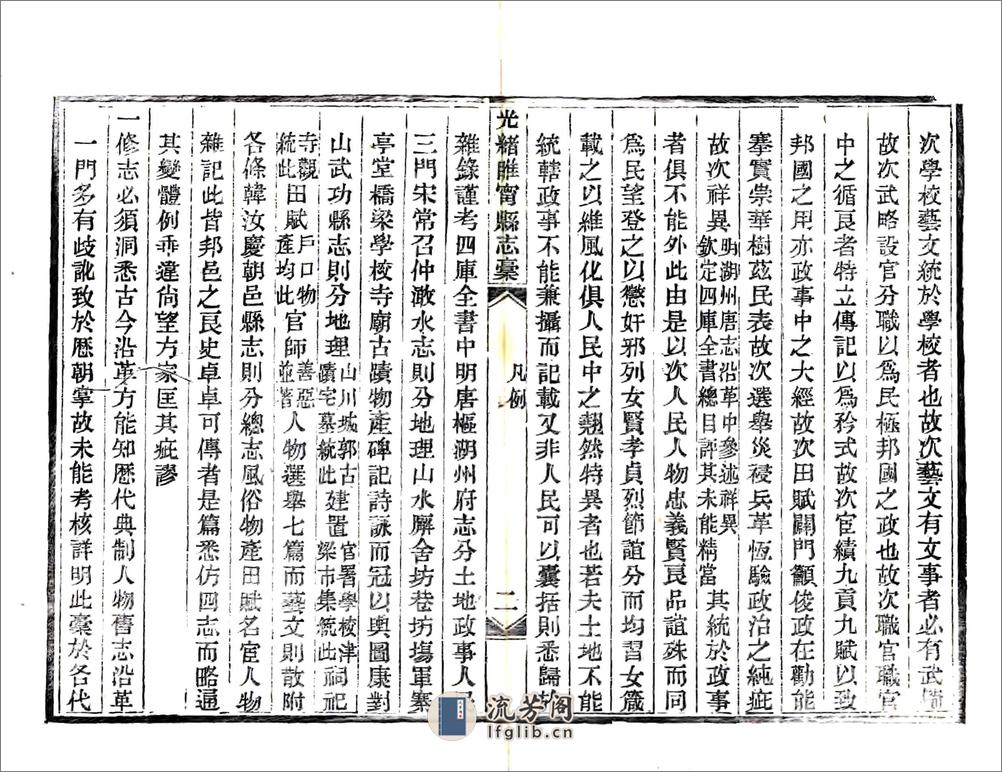 次學校藝文統於學校者也故次藝文有文事者必有武備
故次武略設官分職以爲民極邦國之政也故次職官職官
中之循良者特立傳記以爲矜式故次宦績九貢九賦以致
邦國之用亦政事中之大經故次田賦關門籲俊政在勸能
搴實祟華樹茲民表故次選舉災祲兵革恆驗政治之純疵
故次祥異明湖州唐志沿革中參述祥異欽定四庫全書總目評其未能精當其統於政事
者俱不能外此由是以次人民人物忠義賢良品誼殊而同
爲民望登之以懲奸邪列女賢孝貞烈節誼分而均習女箴
載之以維風化俱人民中之翹然特異者也若夫土地不能
統轄政事不能兼攝而記載又非人民可以囊括則悉歸於
光緒睢甯縣志稾 凡例 二
雜錄謹考四庫全書中明唐樞湖州府志分土地政事人民
三門宋常召仲澉水志則分地理山水廨舍坊巷坊塲軍寨
亭堂橋梁學校寺廟古蹟物產碑記詩詠而冠以輿圖康對
山武功縣志則分地理山川城郭古蹟宅墓統此建置官署學校津梁市集統此祠祀
寺觀統此田賦戶口物產均此官師善惡並著人物選舉七篇而藝文則散附
各條韓汝慶朝邑縣志則分總志風俗物產田賦名宦人物
雜記此皆邦邑之良史卓卓可傳者是篇悉仿四志而略通
其變體例乖違尙望方家匡其疵謬
一修志必須洞悉古今沿革方能知歷代典制人物舊志沿革
一門多有歧訛致於歷朝掌故未能考核詳明此稾於各代
流芳阁
lfglib.cn